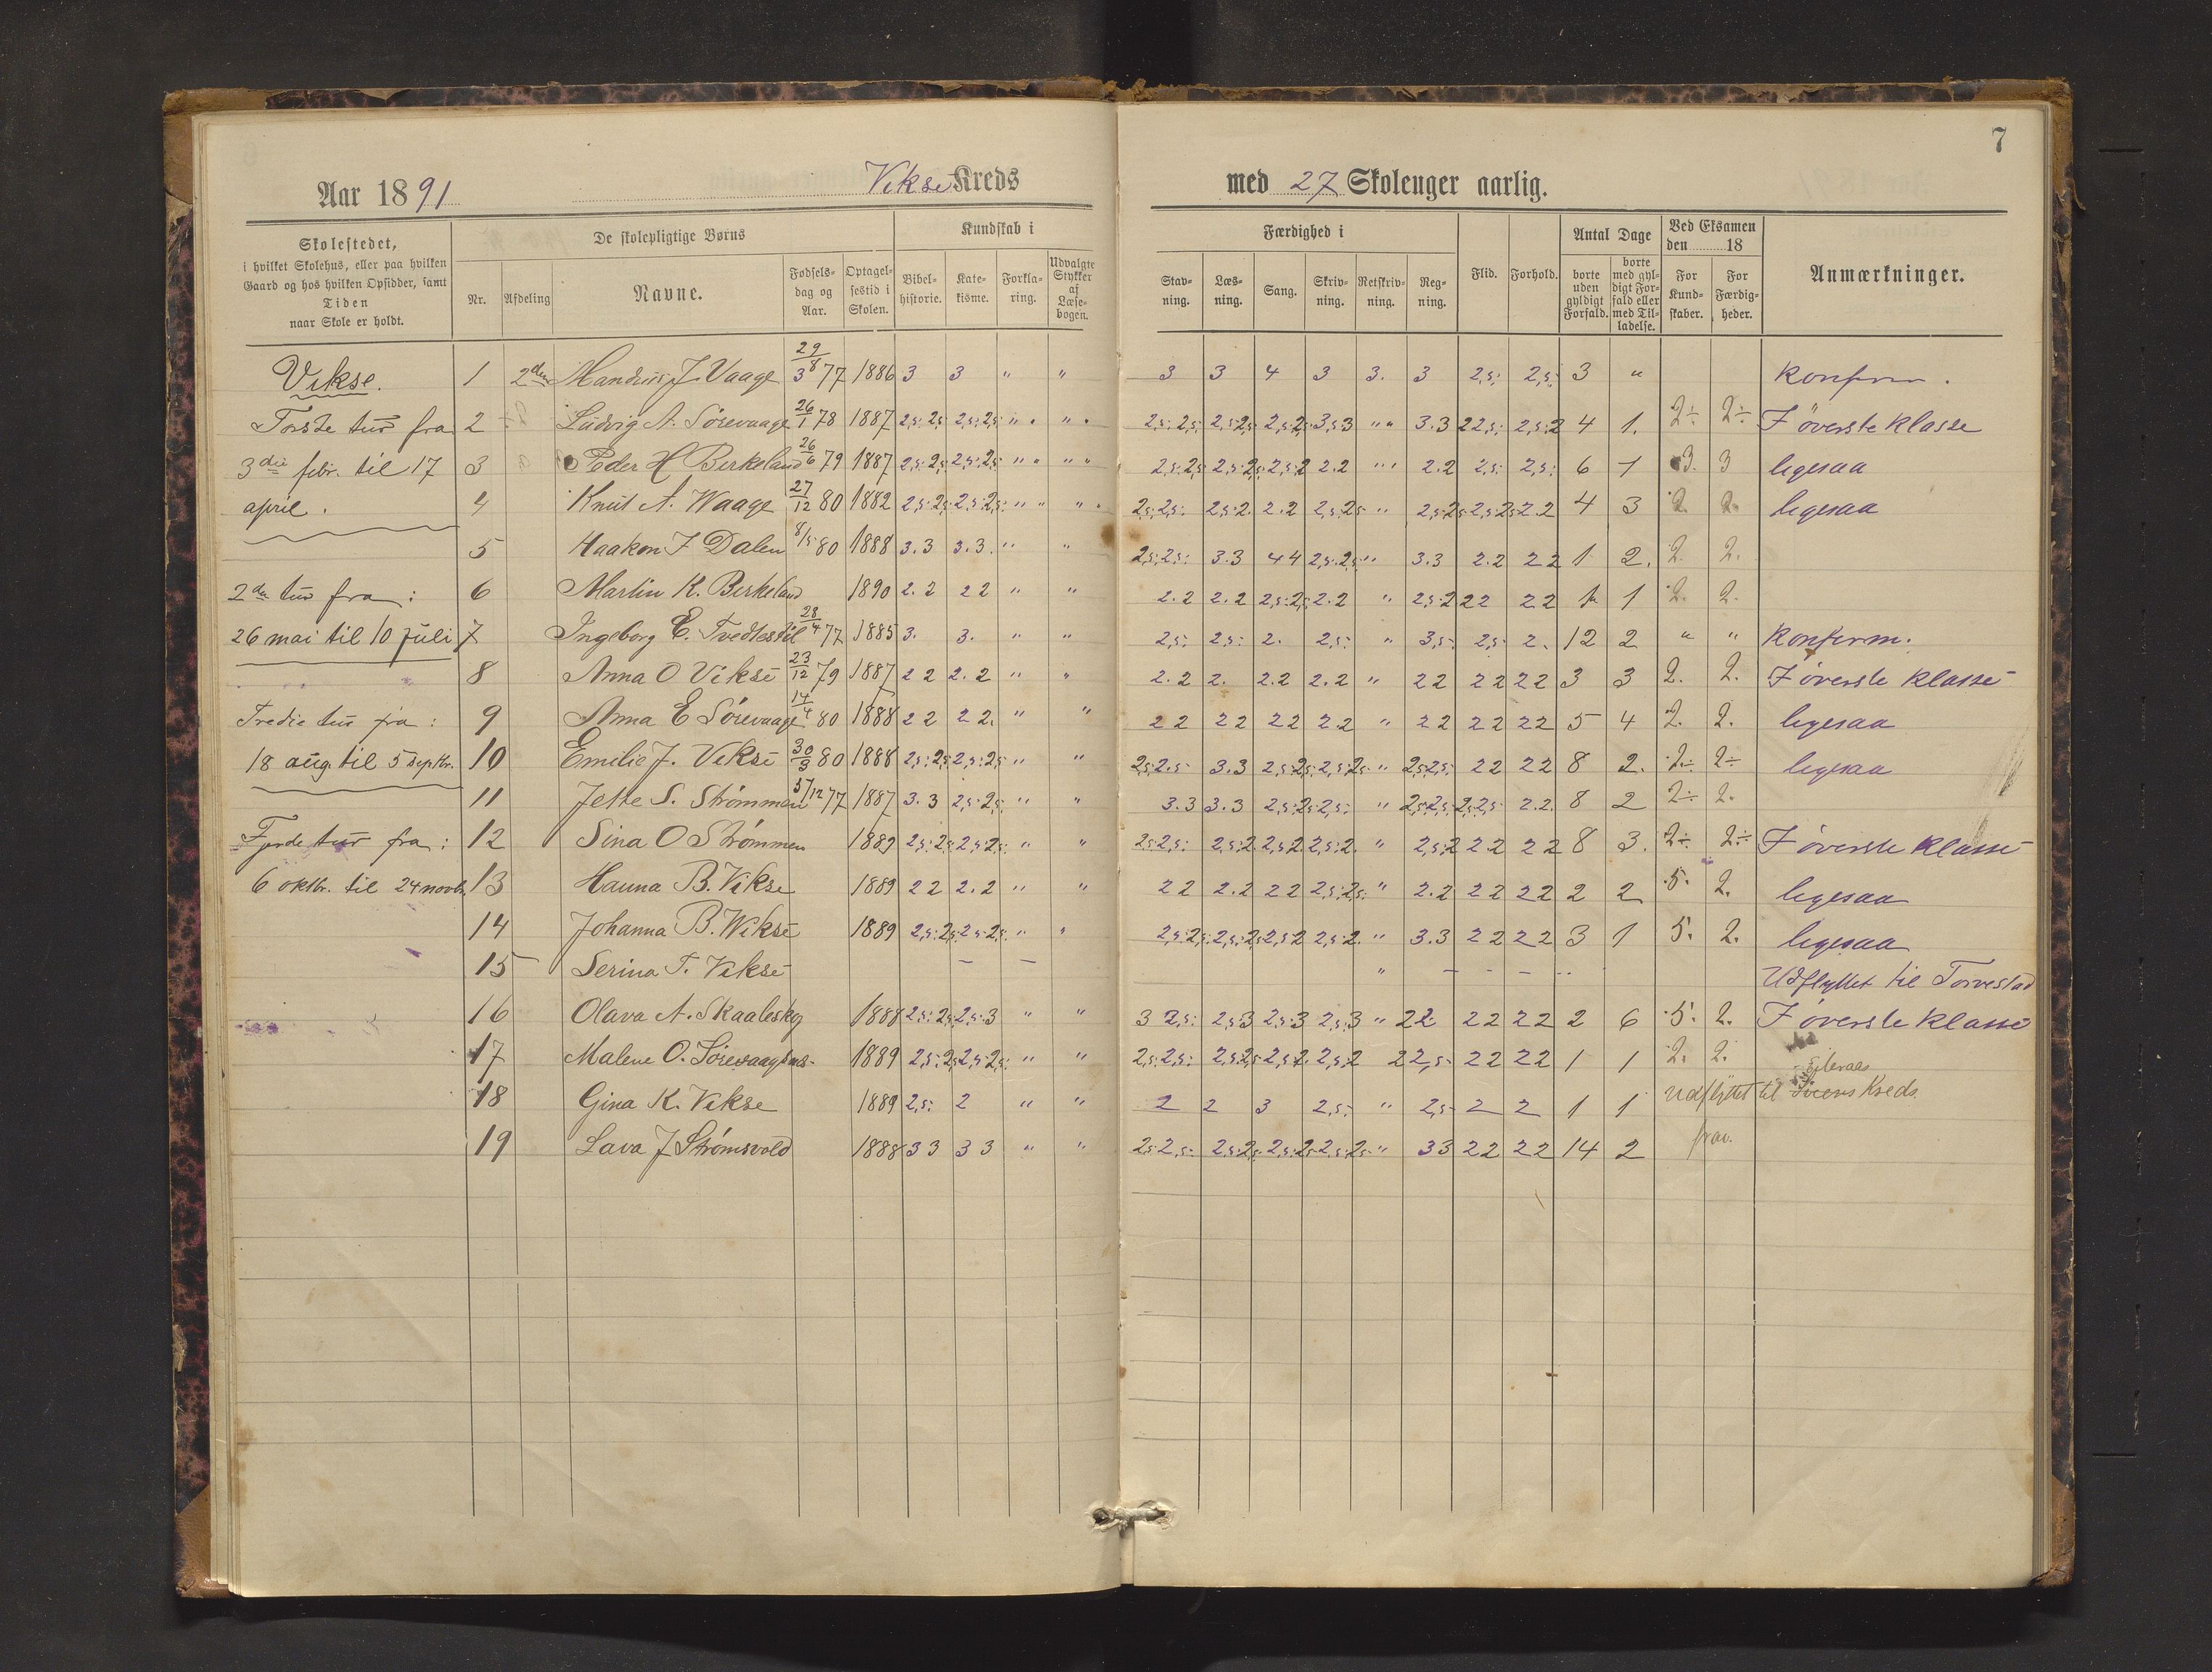 7
Aar 1891 Vikse Kreds med 27 Skoleuger aarlig.
Skolestedet,
i hvilket Skolehus, eller paa hvilken
Gaard og hos hvilken Opsidder, samt
Tiden
naar Skole er holdt.
De skolepligtige Børns
Nr. Afdeling Navne. Fødsels-dag og Aar. Optagel-sestid i Skolen.
Kundskab i
Bibel-historie. Kate-kisme. Forkla-ring. Udvalgte Stykker af Læse-bogen.
Færdighed i
Stav-ning. Læs-ning. Sang. Skriv-ning. Retskriv-ning. Reg-ning.
Flid. Forhold.
Antal Dage
borte uden gyldigt Forfald. borte med gyl-digt For-fald eller med Til-ladelse.
Ved Eksamen den 18
For Kund-skaber. For Færdig-heder.
Anmærkninger.
Vikse. 1 2den J. Vaage 77 1886 3 3 " " 3 3 4 3 3. 3 2,5: 2,5: 3 " Konfirm.
fra 2 Ludvig A. Sørevaage 26/1 78 1887 2,5: 2,5 2,5: 2,5 " " 2,5: 2,5: 2,5: 2,5 2,5: 2,5 3,5: 3 " " 3.3 2 2,5: 2,5: 2 4 1. 2÷ 2÷ I øverste Klasse
3die febr. til 17 3 Peder H Birkeland 26/6 79 1887 2,5: 2,5 2,5: 2,5 " " " " 2,5: 2,5 2,5: 2,5 2,5: 2 2.2 " " 2.2 2,5: 2,5: 6 1 3. 3 ligesaa
april. 4 Knut A. Waage 27/12 80 1882 2,5: 2,5 2,5: 2,5: " " " 2,5: 2,5: 2,5: 2. 2.2 2,5: 2,5 " 2,5: 2,5 2,5: 2,5 2.2 4 3 2. 2. ligesaa
5 Haakon J Dalen 8/5 80 1888 3.3 3.3. " " 2,5: 2,5: 3.3 4 4 2,5: 2,5: " 3.3 2.2 2 2 1 2. 2. 2.
2den tur fra: 6 Martin K. Birkeland 1890 2.2 2 2 " " 2.2 2.2 2,5: 2,5 2.2 " 2,5: 2 2 2 2 2 1 2. 2.
26 mai til 10 juli 7 Ingeborg E. Tvedtestil 28/4 77 1885 3. 3. " " 2,5: 2,5: 2. 2,5: " 3,5: 2,5: 2. 12 2 " " Konfirm.
8 Anna O Vikse 23/12 79 1887 2 2 2.2 " " 2.2 2. 2.2 2.2 " 2 2 2 2 2 2 3 3 2. 2. I øverste Klasse
Tredie tur fra: 9 Anna E Sørevaage 14/4 80 1888 2 2 2 2. " " 2 2 2 2 2 2 2 2 " 2 2 2 2 2 2 5 4 2. 2. ligesaa
18 aug. til 5 septbr. 10 Emilie J. Vikse 80 1888 2,5: 2,5 2,5: 2,5 " " 2,5: 2,5 3.3 2,5: 2,5 2,5: 2,5 " 2,5: 2,5: 2 2 2 2 8 2. 2÷ 2÷ ligesaa
11 Jette S. Strømmen 77 1887 3.3 2,5: 2,5 " " 3.3 3.3 2,5: 2,5 2,5: " 2,5: 2,5: 2,5: 2,5: 2.2. 8 2 2÷ 2.
Fjerde tur fra: 12 Sina O Strømmen 1889 2,5: 2,5 2,5: 2,5: " " 2,5: 2,5: 2,5: 2 2,5: 2 2,5: 2. " 2,5: 2 2 2 2 2 8 3. 2÷ 2÷ I øverste Klasse
6 oktbr. til 24 novbr. 13 Hanna B. Vikse 1889 2 2 2.2 " " 2 2 2.2 2 2 2,5: 2,5: " 2.2 2 2 2 2 2 2 5. 2. ligesaa
14 Johanna B. Wikse 1889 2,5: 2,5 2,5: 2,5: " " 2,5: 2,5: 2,5: 2,5 2,5: 2 2,5: 2. " 3.3 2 2 2 2 3 1 5. 2. ligesaa
15 Serina T. Vikse - - " - - - Udflyttet til Torvestad
16 Olava A. Skaaleskog 1888 2,5: 2,5 2,5: 3 " " 3 2,5: 2,5: 3 2,5: 3 2,5: 3 " 2 2 2 2 2 2 2 6 5. 2. I øverste Klasse
17 Malene O. 1889 2,5: 2,5 2,5: 2,5: " " 2,5: 2,5: 2,5: 2,5 2,5: 2. 2,5: 2 2 2,5: 2 2 2 2 1 1 2. 2.
18 Gina K. Vikse 1889 2,5: 2 " " 2 2 3 2,5: " 2,5: 2 2 1 1 Udflyttet til Eileraas Kreds
19 Lava J Strømsvold 1888 3 3 3 3 " " 2,5: 2,5: 2,5: 2,5: 2,5: 2,5: 2,5: 2,5: " 3 3 2 2 2 2 14 2 frav.